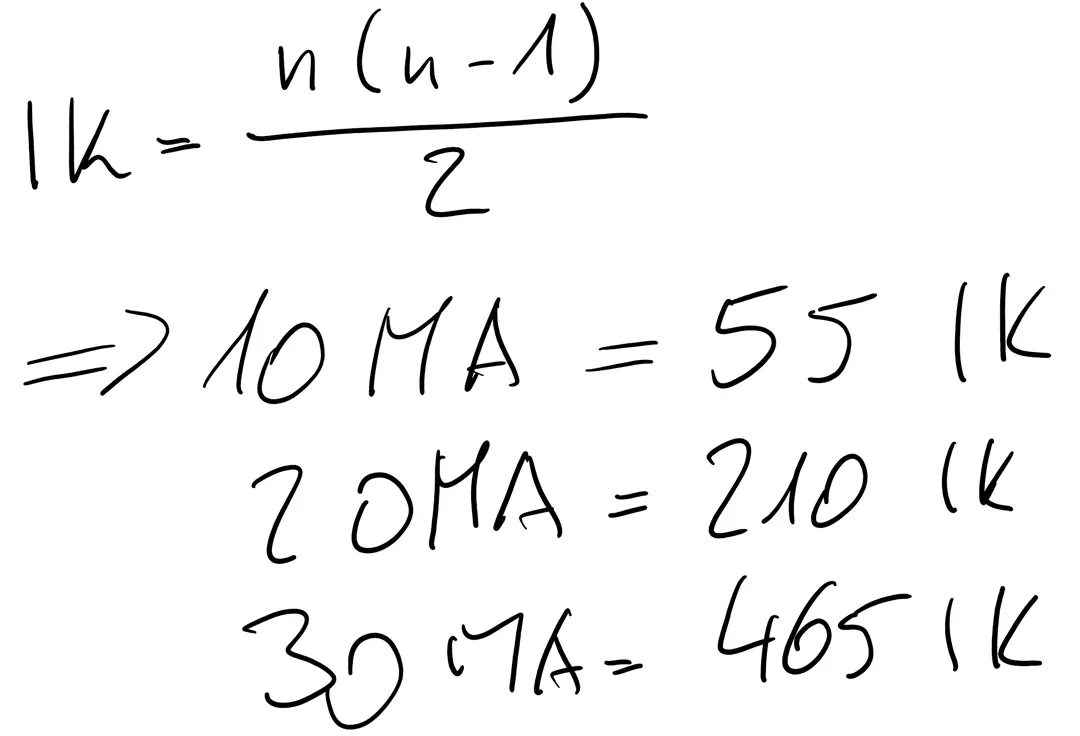 IK = n(n-1)/2
⇒ 10 MA = 55 IK
20 MA = 210 IK
30 MA = 465 IK